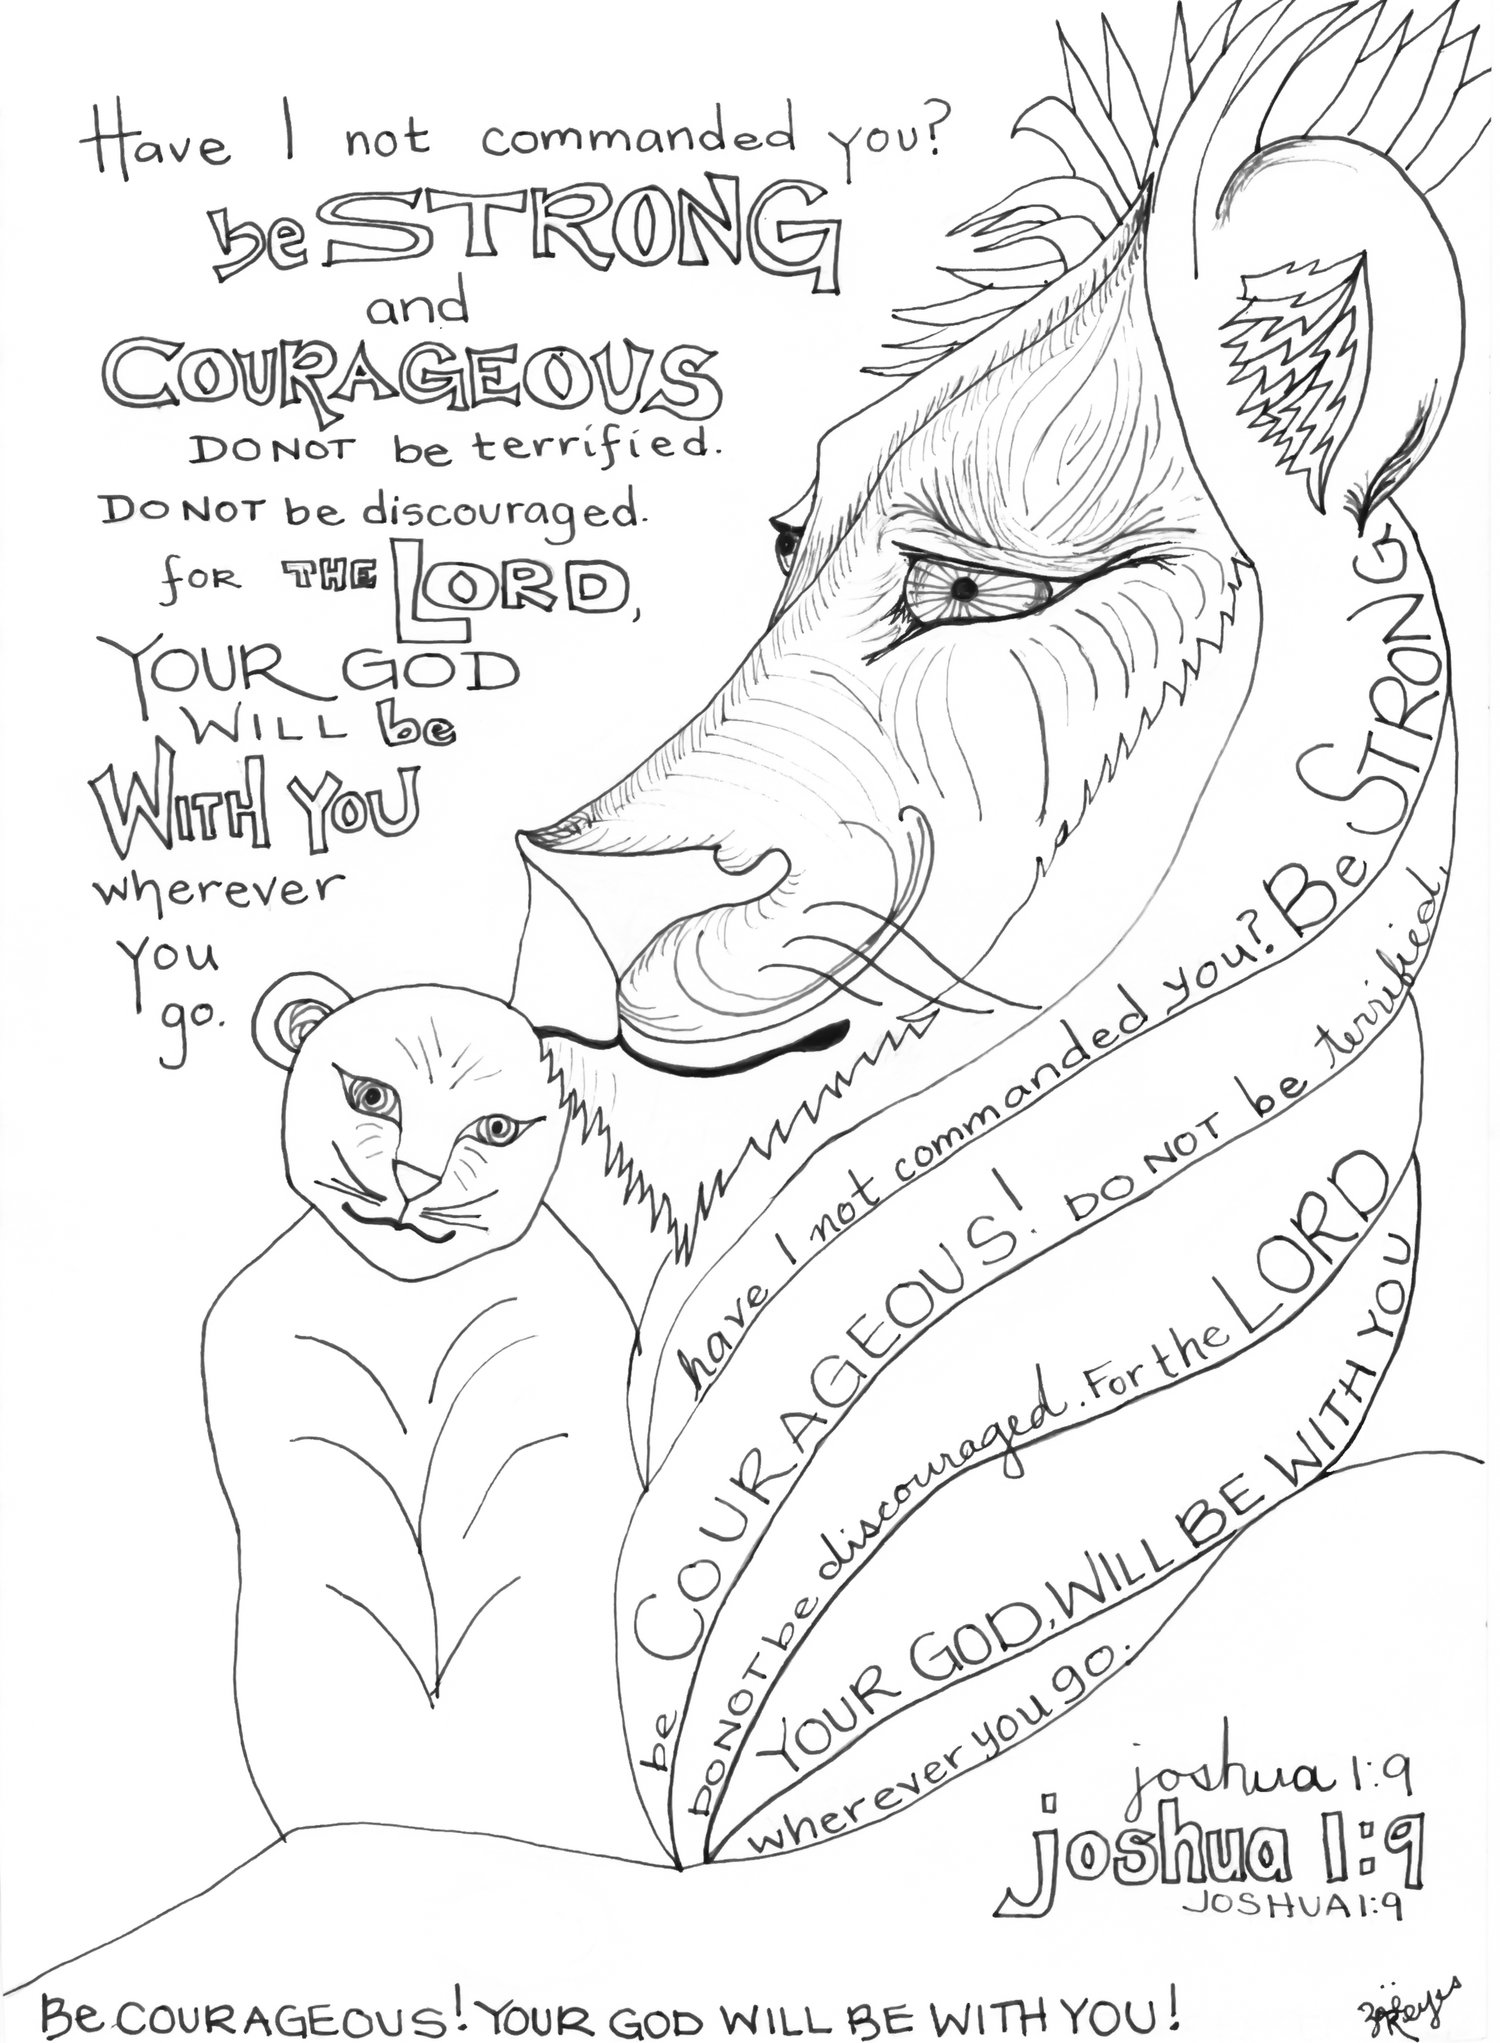 Have I not commanded you?
be STRONG
and
COURAGEOUS
DO NOT be terrified.
DO NOT be discouraged.
for THE LORD,
YOUR GOD
WILL be
WITH YOU
wherever
you
go.
have I not commanded you? Be STRONG
be COURAGEOUS! DO NOT be terrified.
DO NOT be discouraged. For the LORD
YOUR GOD, WILL BE WITH YOU
wherever you go.
joshua 1:9
joshua 1:9
JOSHUA 1:9
Be COURAGEOUS! YOUR GOD WILL BE WITH YOU!